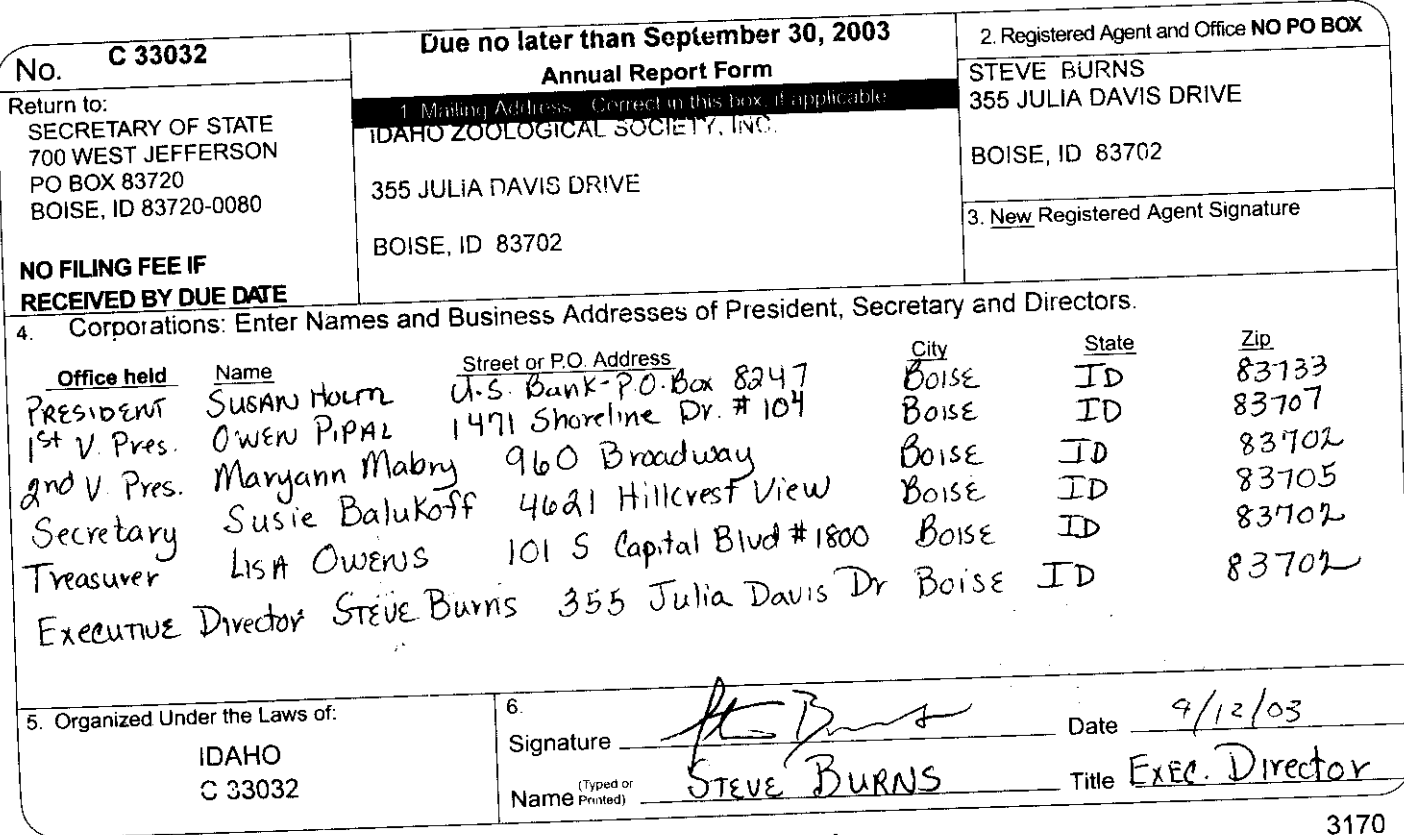 No. C 33032
Return to:
SECRETARY OF STATE
700 WEST JEFFERSON
PO BOX 83720
BOISE, ID 83720-0080
NO FILING FEE IF
RECEIVED BY DUE DATE
Due no later than September 30, 2003
Annual Report Form
1. Mailing Address. Correct in this box, if applicable
IDAHO ZOOLOGICAL SOCIETY, INC.
355 JULIA DAVIS DRIVE
BOISE, ID 83702
2. Registered Agent and Office NO PO BOX
STEVE BURNS
355 JULIA DAVIS DRIVE
BOISE, ID 83702
3. New Registered Agent Signature
4. Corporations: Enter Names and Business Addresses of President, Secretary and Directors.
Office held Name Street or P.O. Address City State Zip
PRESIDENT SUSAN U.S. Bank-P.O. Box 8247 BOISE ID 83733
1st V. Pres. OWEN PIPAL 1471 Shoreline Dr. #104 BOISE ID 83707
2nd V. Pres. Maryann Mabry 960 Broadway BOISE ID 83702
Secretary Susie Balukoff 4621 Hillcrest View BOISE ID 83705
Treasurer LISA OWENS 101 S Capital Blvd #1800 BOISE ID 83702
EXECUTIVE Director STEVE Burns 355 Julia Davis Dr BOISE ID 83702
5. Organized Under the Laws of:
IDAHO
C 33032
6.
Signature Date 9/12/03
Name (Typed or Printed) STEVE BURNS Title EXEC. Director
3170